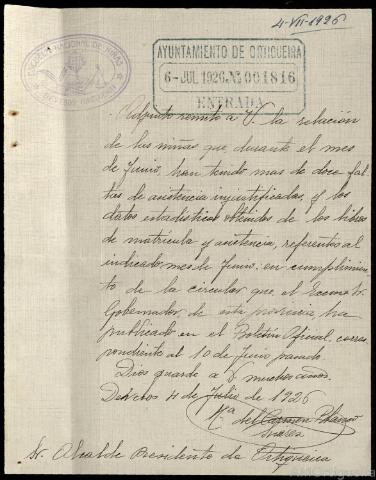 4-VII-1926
ESCUELA NACIONAL DE NIÑAS
AYUNTAMIENTO DE ORTIGUEIRA
6-JUL 1926 No 001816
ENTRADA
Adjunto remito a V. la relación
de las niñas que durante el mes
de Junio, han tenido mas de doce fal
tas de asistencia injustificadas, y los
datos estadísticos obtenidos de los libros
de matrícula y asistencia, referentes al
indicado mes de Junio, en cumplimien
to de la circular que el Excmo Sr.
Gobernador de esta provincia ha
publicado en el Boletín Oficial, corres
pondiente al 10 de Junio pasado.
Dios guarde a V. muchos años.
Devesos 4 de Julio de 1926
Mª del Carmen Blanco
Suarez
Sr. Alcalde Presidente de Ortigueira